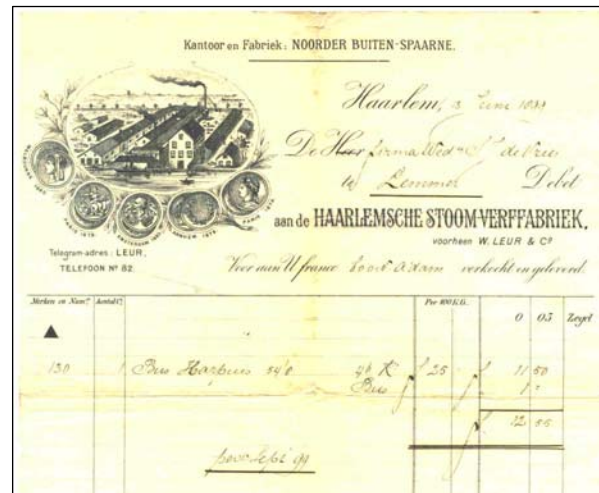 Kantoor en Fabriek: NOORDER BUITEN-SPAARNE.
Haarlem, 3 Juni 1899
De Heer firma Wed. de Vries
te Lemmer Debet
aan de HAARLEMSCHE STOOM-VERFFABRIEK,
voorheen W. LEUR & Co
MELBOURNE
PARIS 1878.
AMSTERDAM
HAARLEM
PARIS
Telegram-adres: LEUR,
TELEFOON No 82.
Voor aan U franco boord A'dam verkocht en geleverd.
Merken en Nomrs. Aantal Per 100 K.G.
0 05 Zegel
130 1 Bus Harpuis 54/8 46 K f 25 f 11 50
Bus 1 "
f 12 55